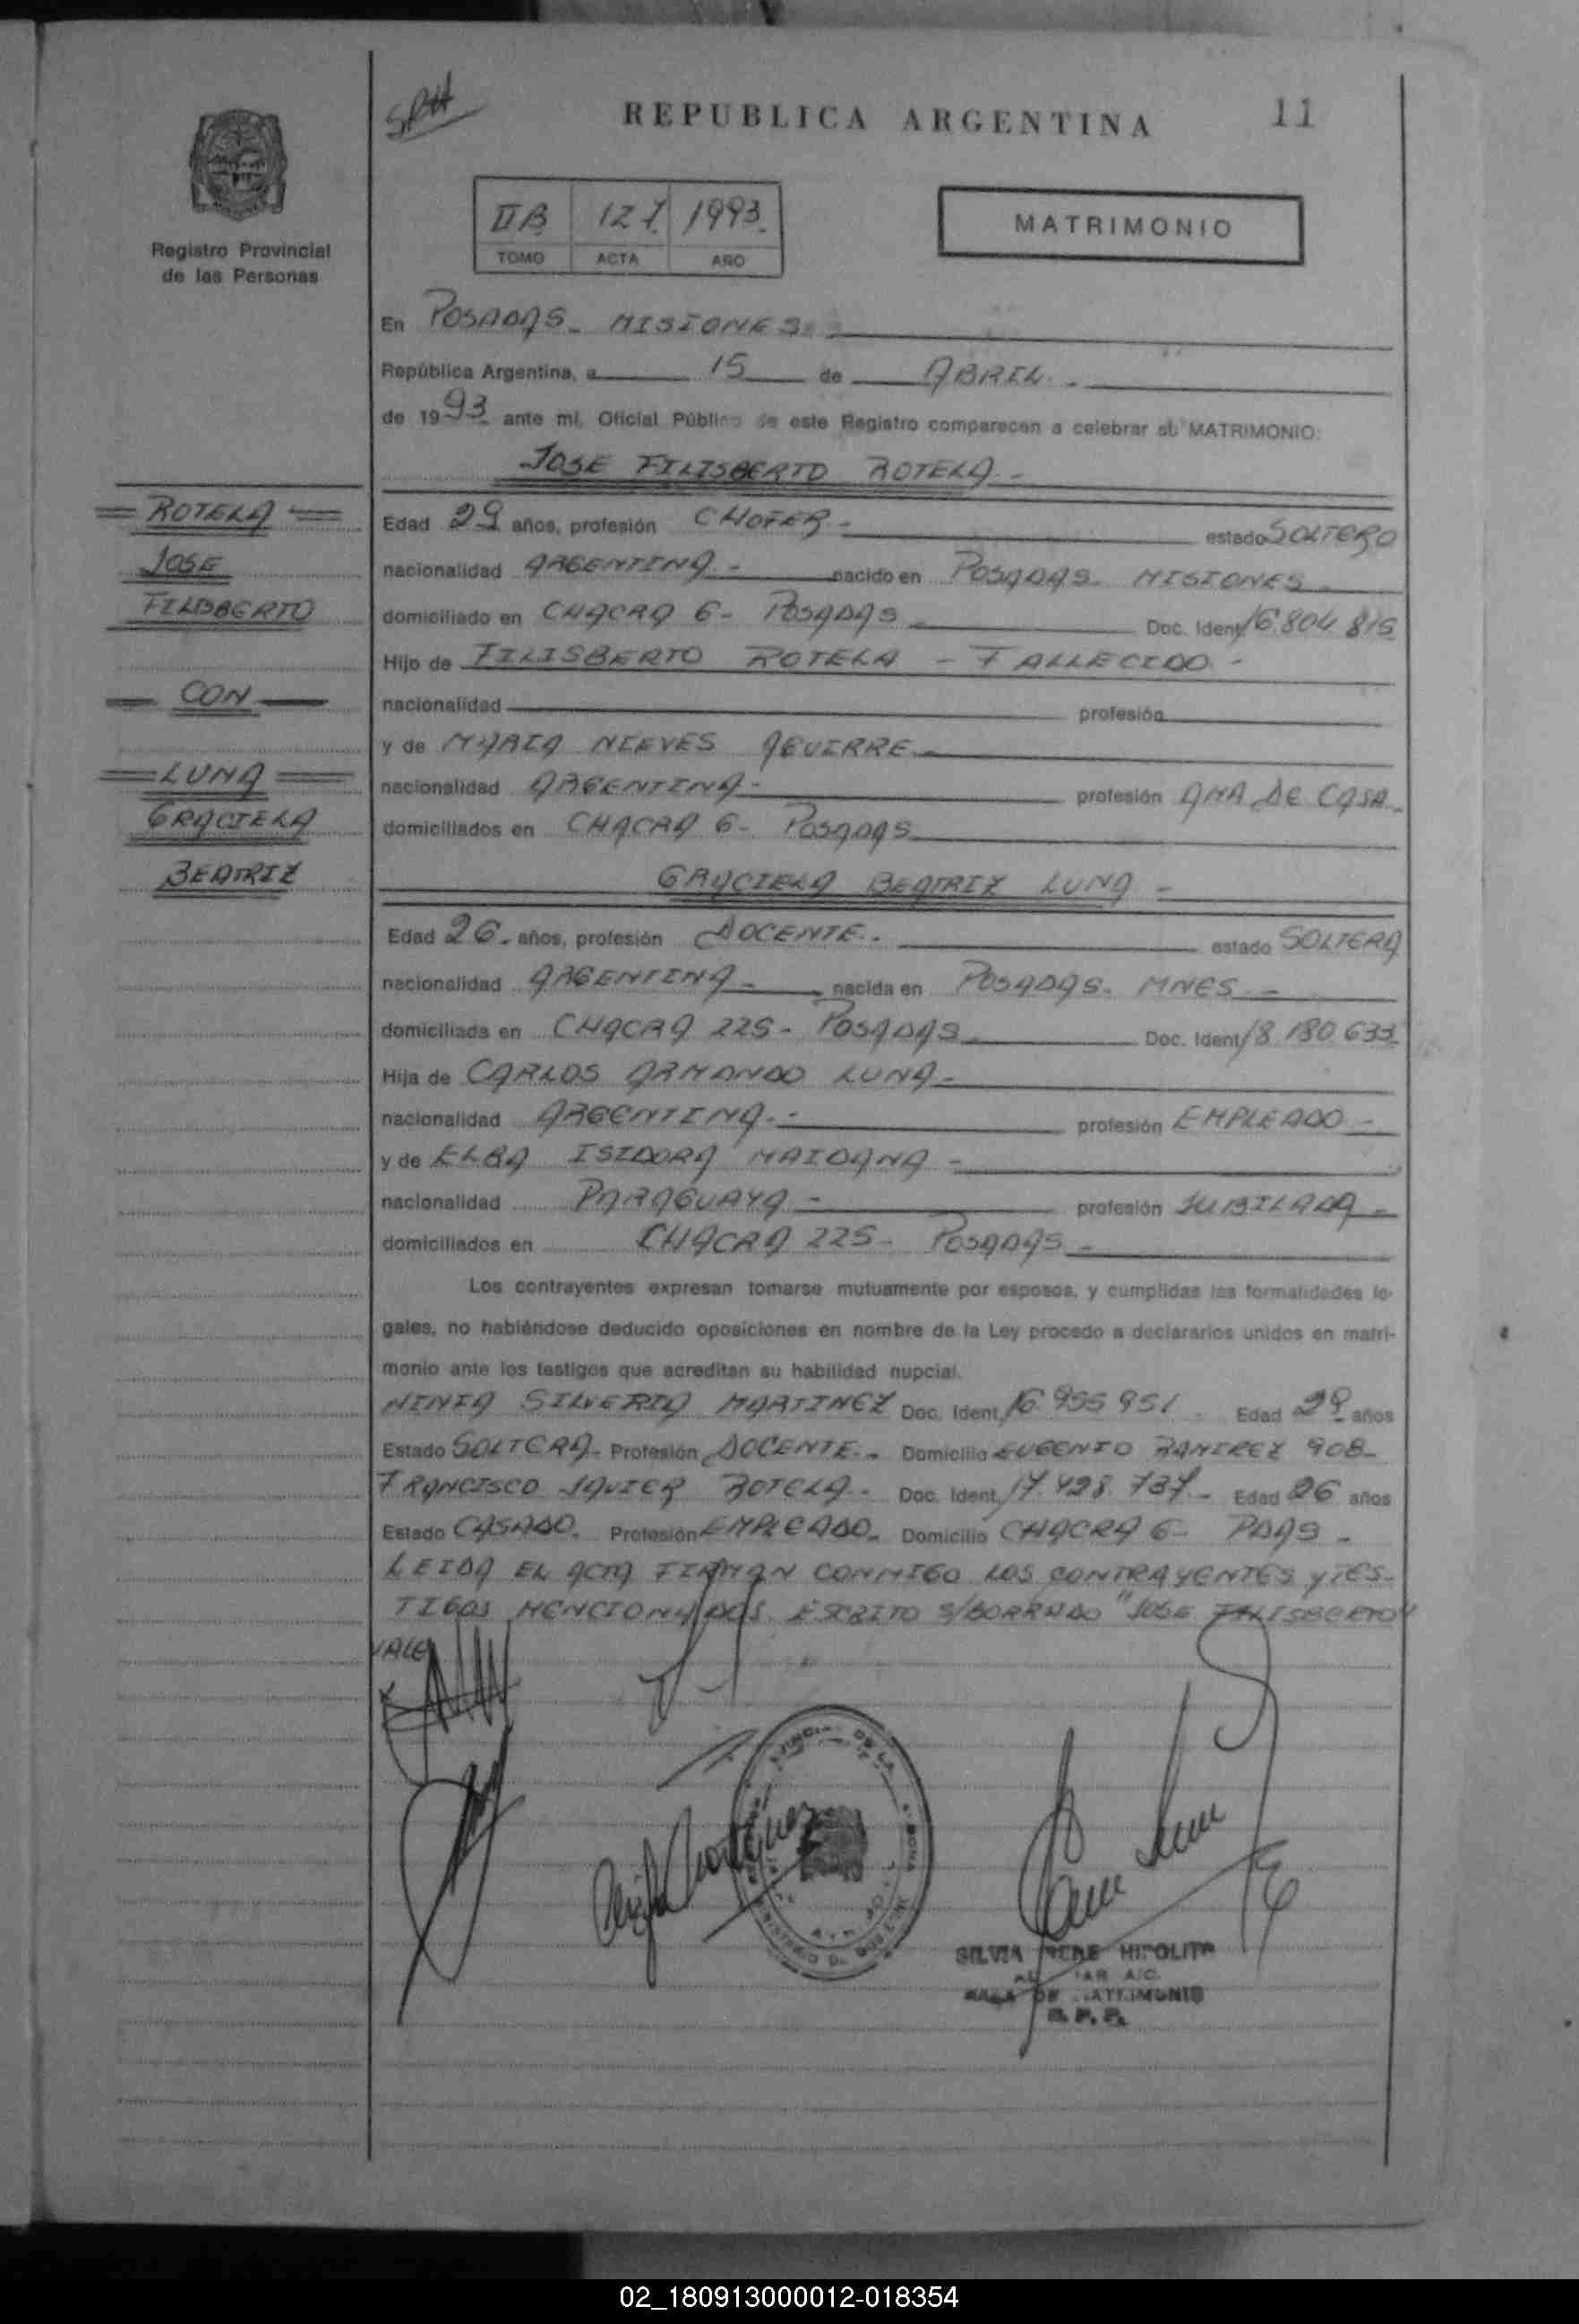 REPUBLICA ARGENTINA
11
Registro Provincial
de las Personas
IIB 127. 1993.
TOMO ACTA AÑO
MATRIMONIO
En POSADAS - MISIONES
República Argentina, a 15 de ABRIL. -
de 1993 ante mí, Oficial Público de este Registro comparecen a celebrar su MATRIMONIO:
JOSE FILISBERTO ROTELA. -
ROTELA
JOSE
FILISBERTO
CON
LUNA
GRACIELA
BEATRIZ
Edad 29 años, profesión CHOFER - estado SOLTERO
nacionalidad ARGENTINA. - nacido en POSADAS - MISIONES
domiciliado en CHACRA 6 - POSADAS Doc. Ident. 16.804.815
Hijo de FILISBERTO ROTELA - FALLECIDO -
nacionalidad profesión
y de MARIA NIEVES AGUIRRE
nacionalidad ARGENTINA - profesión AMA DE CASA
domiciliados en CHACRA 6 - POSADAS
GRACIELA BEATRIZ LUNA -
Edad 26. años, profesión DOCENTE. - estado SOLTERA
nacionalidad ARGENTINA - nacida en POSADAS - MNES -
domiciliada en CHACRA 225 - POSADAS Doc. Ident. 18 180 633
Hija de CARLOS ARMANDO LUNA -
nacionalidad ARGENTINA. - profesión EMPLEADO -
y de ELBA ISIDORA MAIDANA -
nacionalidad PARAGUAYA - profesión JUBILADA -
domiciliados en CHACRA 225 - POSADAS -
Los contrayentes expresan tomarse mutuamente por esposos, y cumplidas las formalidades le-
gales, no habiéndose deducido oposiciones en nombre de la Ley procedo a declararlos unidos en matri-
monio ante los testigos que acreditan su habilidad nupcial.
NINIA SILVERIA MARTINEZ Doc. Ident. 16 955 951 Edad 29 años
Estado SOLTERA - Profesión DOCENTE. - Domicilio EUGENIO RAMIREZ 908 -
FRANCISCO JAVIER ROTELA - Doc. Ident. 17 428 737 - Edad 26 años
Estado CASADO. Profesión EMPLEADO - Domicilio CHACRA 6 - PDAS -
LEIDA EL ACTA FIRMAN CONMIGO LOS CONTRAYENTES y TES-
TIGOS MENCIONADOS. ESCRITO S/BORRADO "JOSE FILISBERTO"
VALE
SILVIA IRENE HIPOLITO
A/C.
SALA DE MATRIMONIO
R. P. P.
02_180913000012-018354